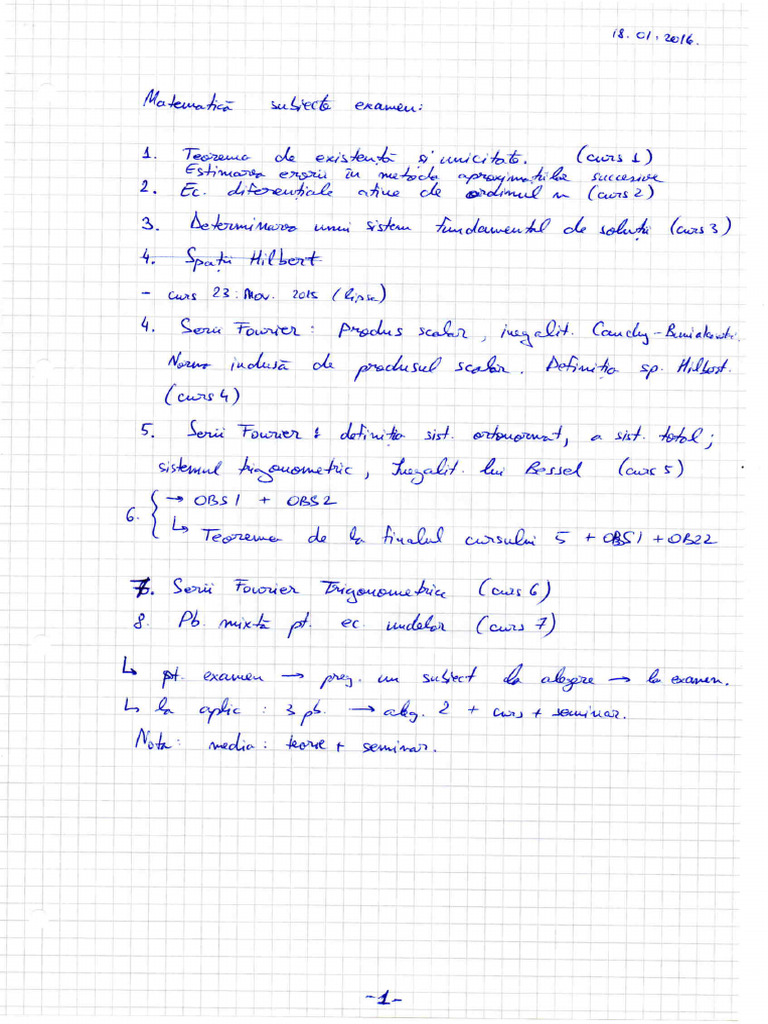 18.01.2016.
Matematică subiecte examen:
1. Teorema de existență și unicitate. (curs 1)
Estimarea erorii în metoda aproximațiilor succesive
2. Ec. diferențiale afine de ordinul n (curs 2)
3. Determinarea unui sistem fundamental de soluții (curs 3)
4. Spații Hilbert
- curs 23. Nov. 2015 (lipsa)
4. Serii Fourier : Produs scalar, inegalit. Cauchy-Buniakovski.
Norma indusă de produsul scalar. Definiția sp. Hilbert.
(curs 4)
5. Serii Fourier : definiția sist. ortonormat, a sist. total;
sistemul trigonometric, Inegalit. lui Bessel (curs 5)
6. { → OBS1 + OBS2
↳ Teorema de la finalul cursului 5 + OBS1 + OBS2
7. Serii Fourier Trigonometrice (curs 6)
8. Pb. mixtă pt. ec. undelor (curs 7)
↳ pt. examen → preg. un subiect la alegere → la examen.
↳ la aplic : 3 pb. → aleg. 2 + curs + seminar.
Nota: media: teorie + seminar.
-1-